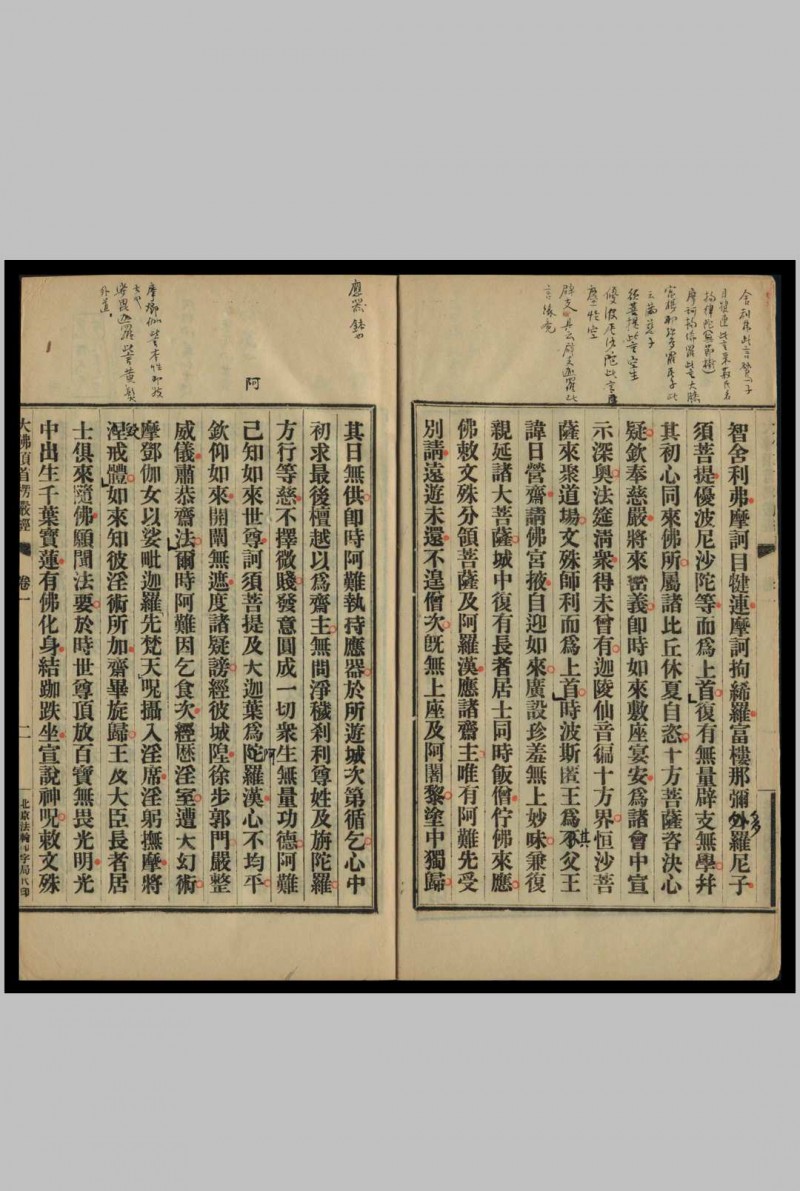 智舍利弗摩訶目犍連摩訶拘絺羅富樓那彌外羅尼子
多
須菩提優波尼沙陀等而為上首復有無量辟支無學幷
其初心同來佛所屬諸比丘休夏自恣十方菩薩咨決心
疑欽奉慈嚴將來密義卽時如來敷座宴安為諸會中宣
示深奧法筵清衆得未曾有迦陵仙音徧十方界恒沙菩
薩來聚道場文殊師利而為上首時波斯匿王為不父王
其
諱日營齋請佛宮掖自迎如來廣設珍羞無上妙味兼復
親延諸大菩薩城中復有長者居士同時飯僧佇佛來應
佛敕文殊分領菩薩及阿羅漢應諸齋主唯有阿難先受
別請遠遊未還不遑僧次旣無上座及阿闍黎塗中獨歸
應器 鉢也
其日無供卽時阿難執持應器於所遊城次第循乞心中
初求最後檀越以為齋主無問淨穢刹利尊姓及旃陀羅
方行等慈不擇微賤發意圓成一切衆生無量功德阿難
阿
已知如來世尊訶須菩提及大迦葉為陀羅漢心不均平
阿
欽仰如來開闡無遮度諸疑謗經彼城隍徐步郭門嚴整
威儀肅恭齋法爾時阿難因乞食次經歷淫室遭大幻術
摩鄧伽女以娑毗迦羅先梵天呪攝入淫席淫躬撫摩將
涅戒體如來知彼淫術所加齋畢旋歸王及大臣長者居
士俱來隨佛願聞法要於時世尊頂放百寶無畏光明光
中出生千葉寶蓮有佛化身結跏趺坐宣說神呪敕文殊
大佛頂首楞嚴經 卷一 二